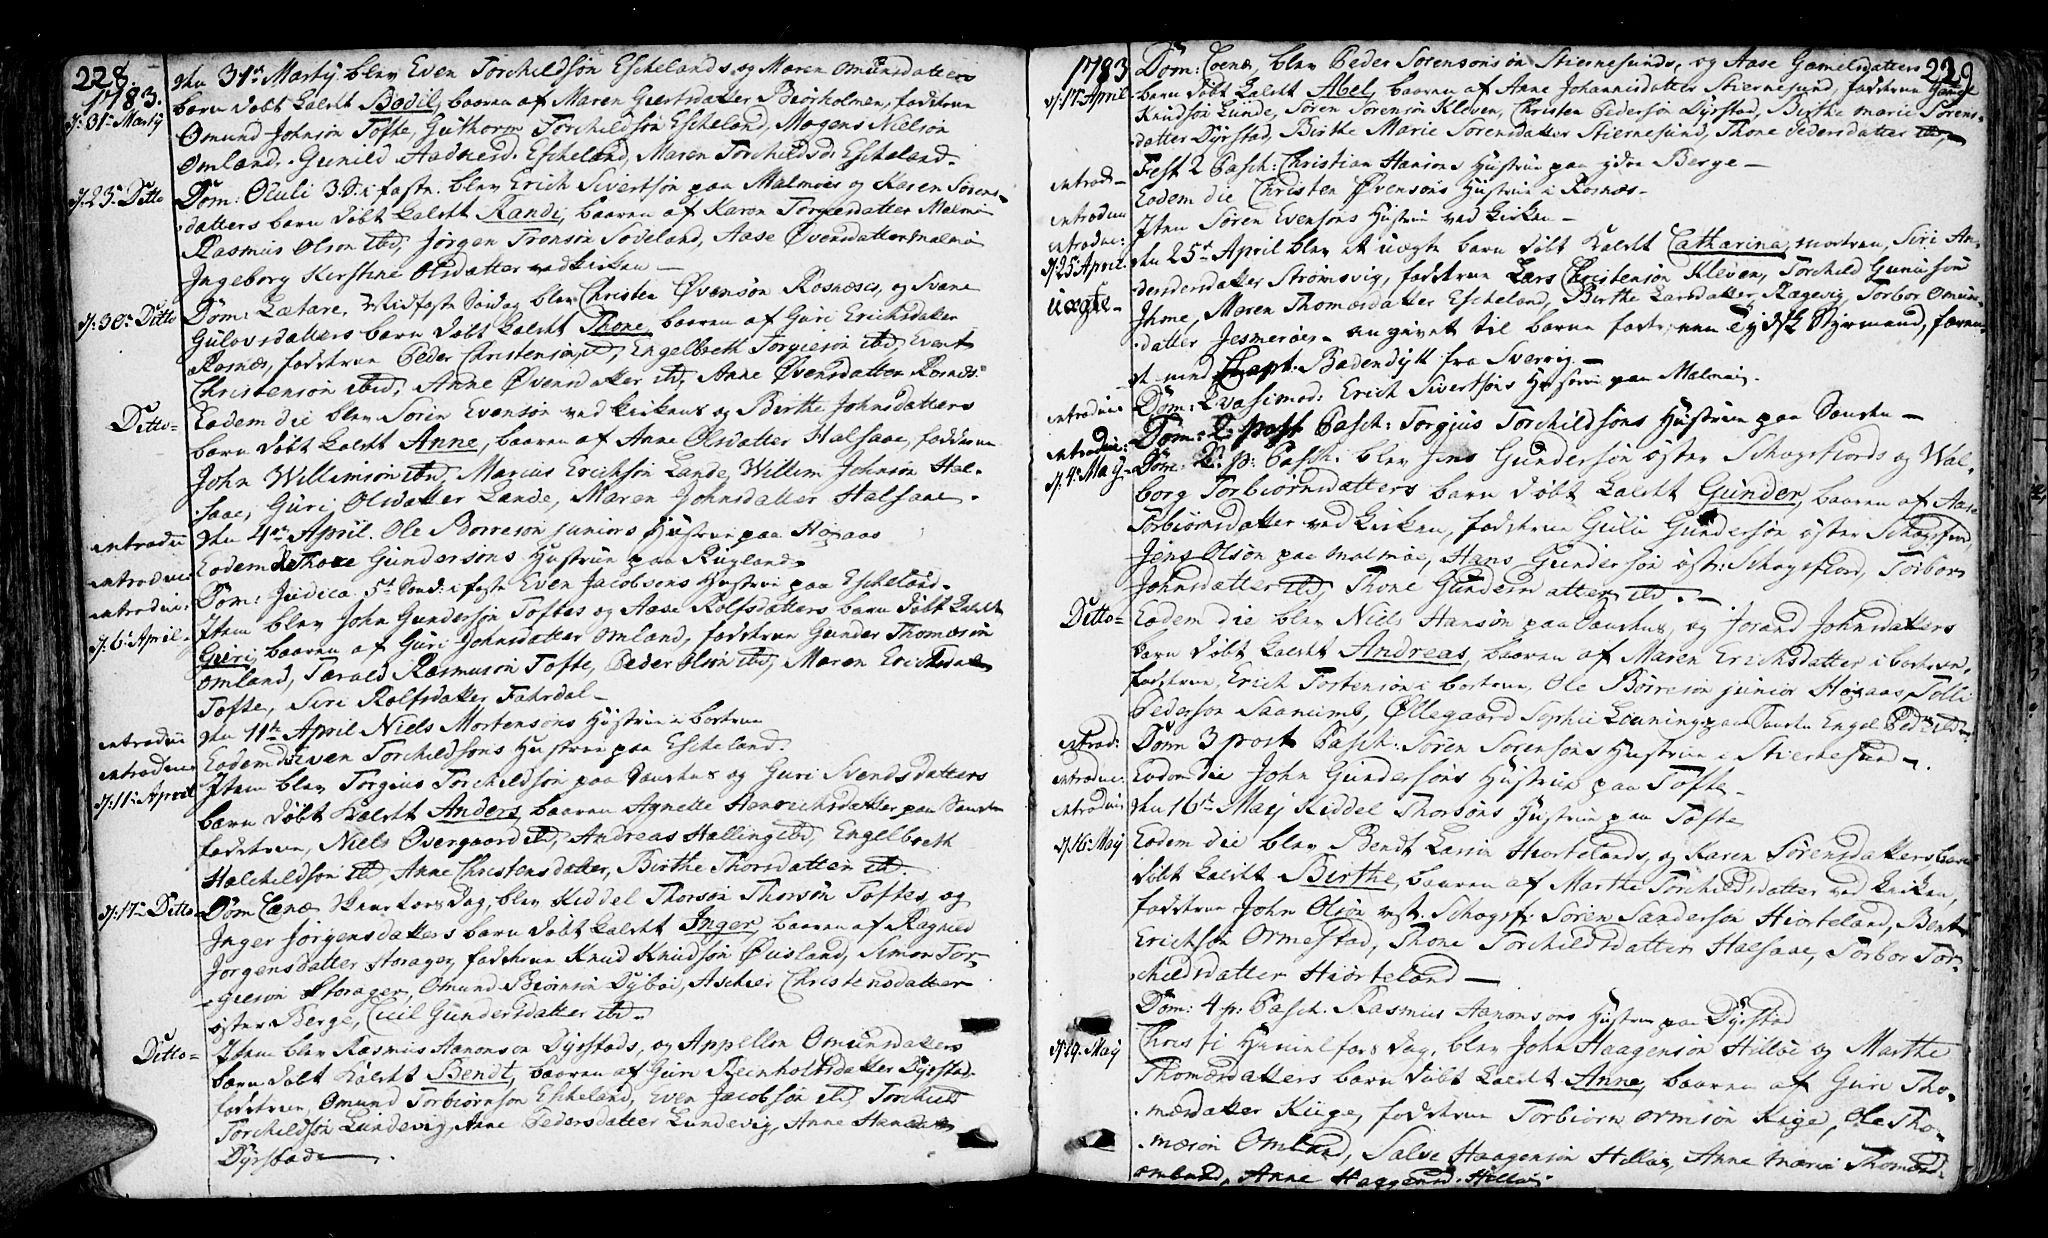 228.
1783.
d. 31te Martij
den 31te Martij blev Even Torchildsön Eschelands, og Maren Omunsdatters
barn döbt kaldet Bodil, baaren af Maren Giertsdatter Biörholmen, fadderne
Omund Johnsön Tofte, Guthorm Torchildsön Escheland, Mogens Nielsön
Omland. Gunild Aadnesd. Escheland, Maren Torchildsd: Escheland.
d. 23de Ditto
Dom: Oculi 3. S. i fastn. blev Erich Sivertsön paa Malmöes og Karen Sörens-
datters barn döbt kaldet Randi, baaren af Karen Torgiesdatter Malmöe
Rasmus Olson ibid, Jörgen Tronsön Soveland, Aase Övensdatter Malmöe
Ingeborg Kirstine Olsdatter ved kirken —
d. 30te Ditto
Dom: Lætare, Midfaste Söndag blev Christen Övensön Rosnæses, og Svane
Gulovsdatters barn döbt kaldet Thone, baaren af Guri Erichsdatter
Rosnæs, fadderne Peder Christensön ibid, Engelbreth Torgieson ibid, Event
Christensön ibid, Anne Övensdatter ibid, Anne Övensdatter Rosnæs.
Ditto-
Eodem die blev Sören Evensön ved kirkens og Birthe Johnsdatters
barn döbt kaldet Anne, baaren af Anne Olsdatter Halsaae, fadderne
John Willumsön ibid, Marcus Erichsön Lande, Willem Johnsön Hal-
saae, Guri Olsdatter Lande, Maren Johnsdatter Halsaae.
introdu:
den 4de April. Ole Börreson juniors Hustrue paa Högaas
introdu:
Eodem die Thore Gundersöns Hustrue paa Rugland.
introdu:
Dom: Judica 5te Sönd: i faste Even Jacobsons Hustrue paa Escheland.
d. 6te April
Item blev John Gundersön Toftes og Aase Rolfsdatters barn döbt kaldet
Guri, baaren af Guri Johnsdatter Omland, fadderne Gunder Thomæsön
Omland, Tarald Rasmusön Tofte, Peder Olsön ibid, Maren Erichsdatter
Tofte, Siri Rolfsdatter Fahrdal —
introdu:
den 11te April Niels Mortensöns Hustrue i bostrue
introdu:
Eodem die Even Torchildsöns Hustrue paa Escheland.
d. 11te April
Item blev Torgius Torchildsön paa Sanskes og Guri Svendsdatters
barn döbt kaldet Anders, baaren Agnette Hanrichsdatter paa Sansken
fadderne, Niels Overgaard ibid, Andreas Halling ibid, Engelbreth
Halchildsön ibid, Anne Christensdatter, Birthe Thorsdatter ibid.
d. 17de Ditto-
Dom Cænæ Skiærtorsdag, blev Kiddel Thorsön Thorsön Toftes, og
Inger Jörgensdatters barn döbt kaldet Inger, baaren af Ragnild
Jorgensdatter Storager, fadderne Knud Knudsön Öusland, Simon Tor-
gieson Storager, Omund Biörnsön Dyböe, Aschier Christensdatter
öster Berge, Civil Gundersdatter ibid.
Ditto-
Item blev Rasmus Aanonsen Dyrstads, og Appellon Omunsdatters
barn döbt kaldet Bendt, baaren af Guri Reinholtsdatter Dyrstad
fadderne, Omund Torbiörnsön Escheland, Even Jacobsön ibid, Torchild
Torchildsön Lundevig, Anne Pedersdatter Lundevig, Anne Hansdatter
Dyrstad.
1783
229
d. 17de April
Dom: Coenæ, blev Peder Sörensöns ön Stiernesunds, og Aase Gamelsdatters
barn döbt kaldet Abel, baaren af Anne Johannisdatter Stiernesund, fadderne
Knudsön Lunde, Sören Sorensön Kleven, Christen Pedersön Dyrstad, Birthe marie Sörens-
datter Dyrstad, Birthe Marie Sörensdatter Stiernesund, Thone Pedersdatter ibid,
introd-
Fest 2 Pasch: Christian Hansöns Hustrue paa ydre Berge —
Eodem die Christen Övensöns Hustrue i Rosnæs-
introdu
Item Sören Evensöns Hustrue ved kirken —
introdu:
d. 25de April.
uægte-
den 25de April blev et uægte barn döbt kaldet Catharina, modren, Siri An-
dersdatter Strömsvig, fadderne Lars Christensön Kleven, Torchild Gunnisön
Ihme, Maren Thomæsdatter Escheland, Birthe Larsdatter Ragevig, Torbor Omun-
datter Jesmeröe- angivet til barne fader, en Styrmand, faren-
de med Capt. Badendyk fra Sverrig. —
introdu:
Dom: Qvasimod: Erich Sivertsöns Hustrue paa Malmöe.
introdu:
Dom: 2. post Pasch: Torgius Torchildsöns Hustrue paa Sansken —
d. 4. Maij-
Dom. 2. p: Pasch. blev Jens Gundersön öster Schogsfiords og Wal-
borg Torbiörnsdatters barn döbt kaldet Gunder, baaren af Aase
Torbiörnsdatter ved kirken, fadderne Gulu Gundersön öster Schogsfiord,
Jens Olsön paa malmöe, Hans Gundersön öst: Schogsfiord, Torbor
Johnsdatter ibid, Thone Gundersdatter ibid. —
Ditto-
Eodem die blev Niels Hansön paa Sanskes, og Jorand Johnsdatters
barn döbt kaldet Andreas, baaren af Maren Erichsdatter i bostrue,
fadderne, Erich Tostensön i bostrue, Ole Börresön junior Högaas, Tolli
Pederson Saanumb, Öllegaard Sophie Leuning paa Sansken Engel Pedersd
introd:
Dom 3 post Pasch: Sören Sorensöns Hustrue i Stiernesund.
introdu:
Eodem die John Gundersöns Hustrue paa Tofte —
introdu:
den 16de Maij Kiddel Thorsöns Hustrue paa Tofte
d. 16. Maij
Eodem die blev Bendt Larsön Hiortelands, og Karen Sörensdatters barn
döbt kaldet Birthe, baaren af Marthe Torchildsdatter ved kirken,
fadderne John Olsön vest. Schogsf: Sören Sandersön Hiorteland, Bent
Erichsön Ormestad, Thone Torchildsdatter Halsaae, Torbor Tor-
childsdatter Hiorteland —
Dom: 4 p: Pasch. Rasmus Aanonsöns Hustrue paa Dyrstad
d. 29. Maij
Christi Himmelfarts Dag, blev John Haagensön Hillöe og Marthe
Thomæsdatters barn döbt kaldet Anne, baaren af Guri Tho-
mæsdatter Kiige, fadderne Torbiörn Ormsön Kige, Ole Tho-
mæsön Omland, Salve Haagensön Hillöe, Anne Marie Thomæsd:
omland, Anne Haagensd. Hillöe.